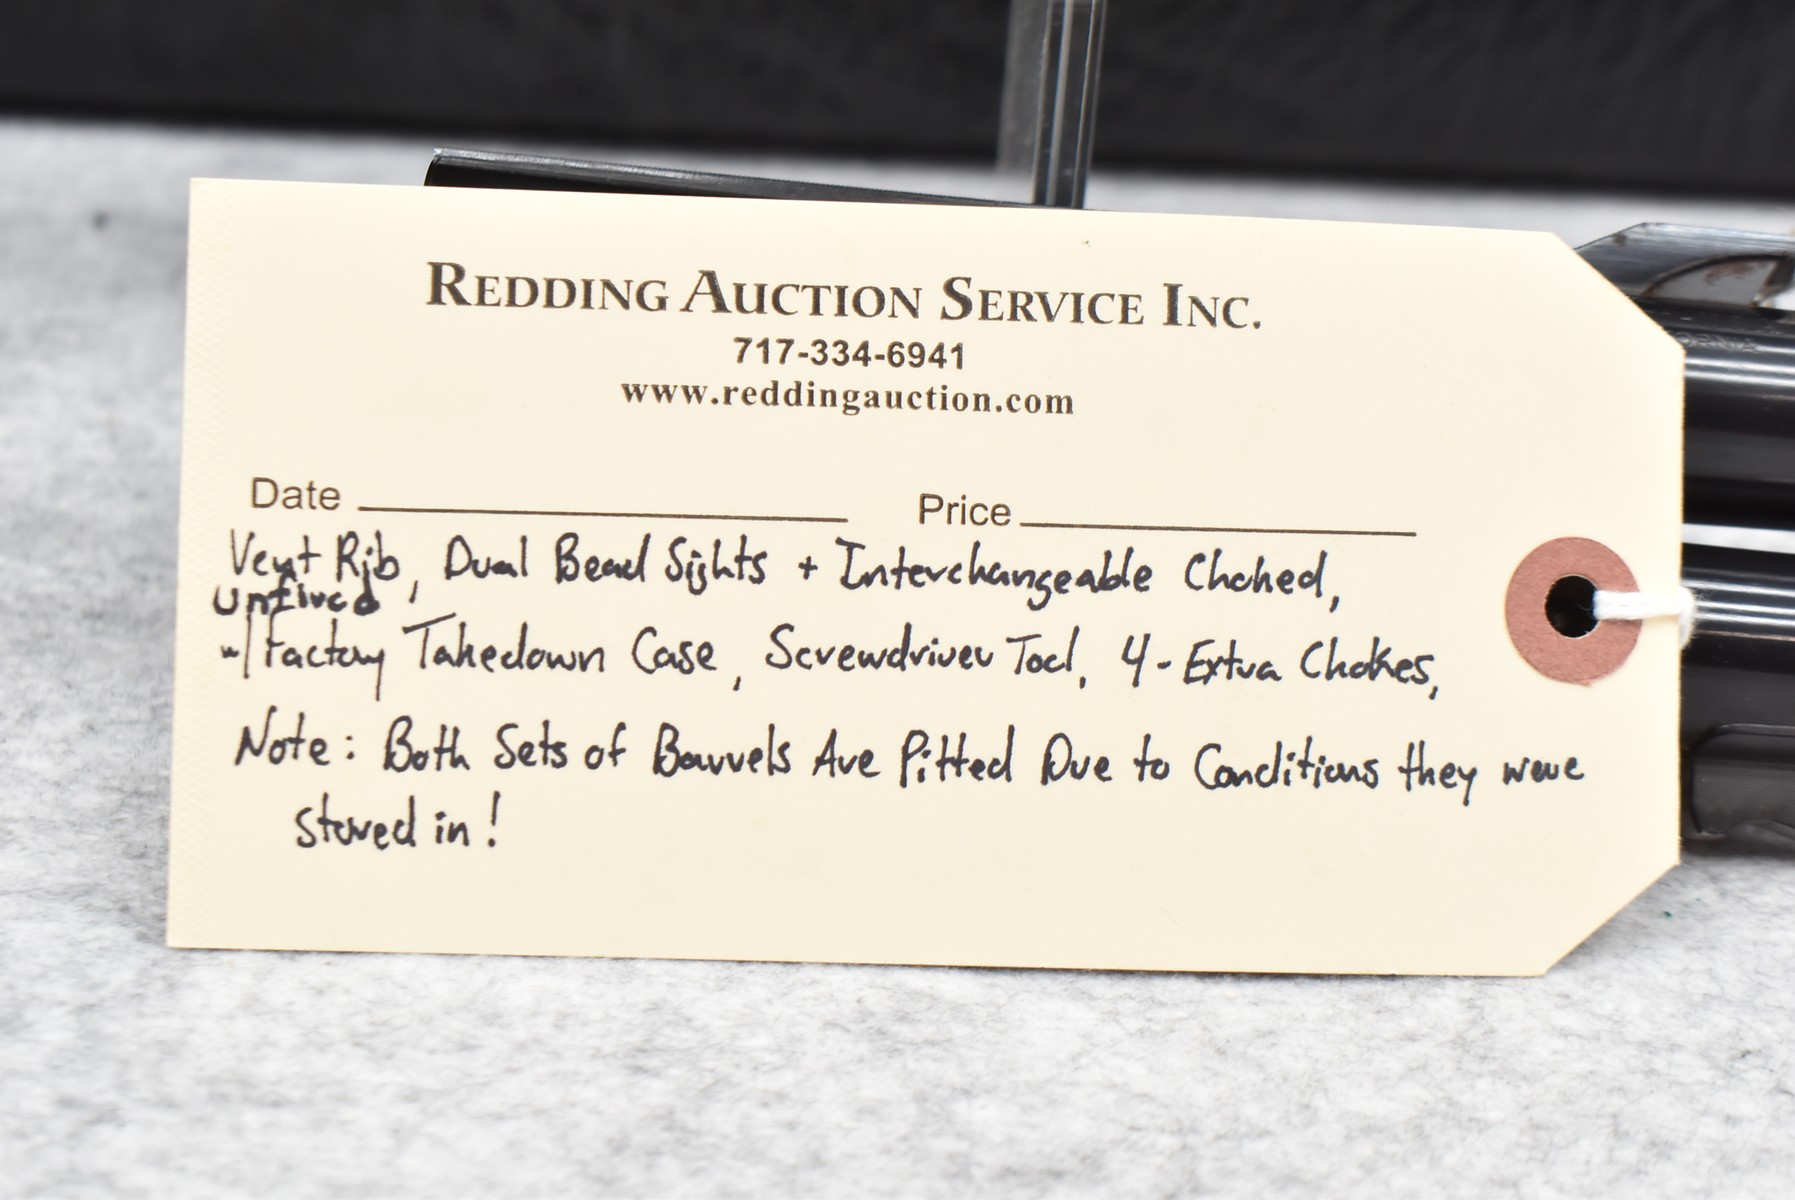 REDDING AUCTION SERVICE INC.
717-334-6941
www.reddingauction.com
Date Price
Vent Rib, Dual Bead Sights + Interchangeable Choked,
unfired,
w/ Factory Takedown Case, Screwdriver Tool, 4-Extra Chokes,
Note: Both Sets of Barrels Are Pitted Due to Conditions they were
stored in!